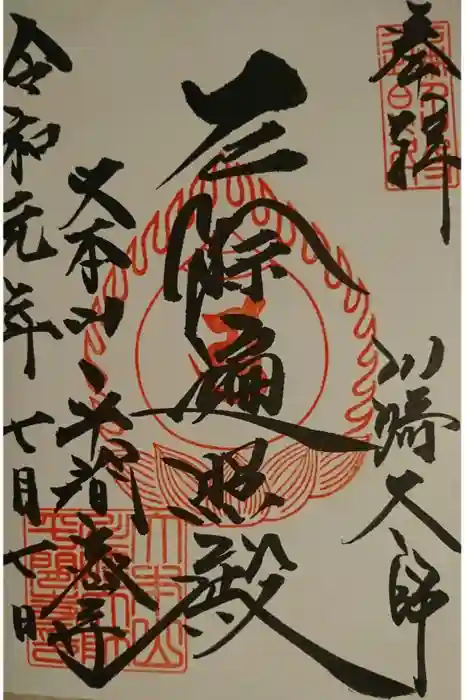 奉拝
川崎大師
厄除遍照殿
大本山平間寺
令和元年七月七日